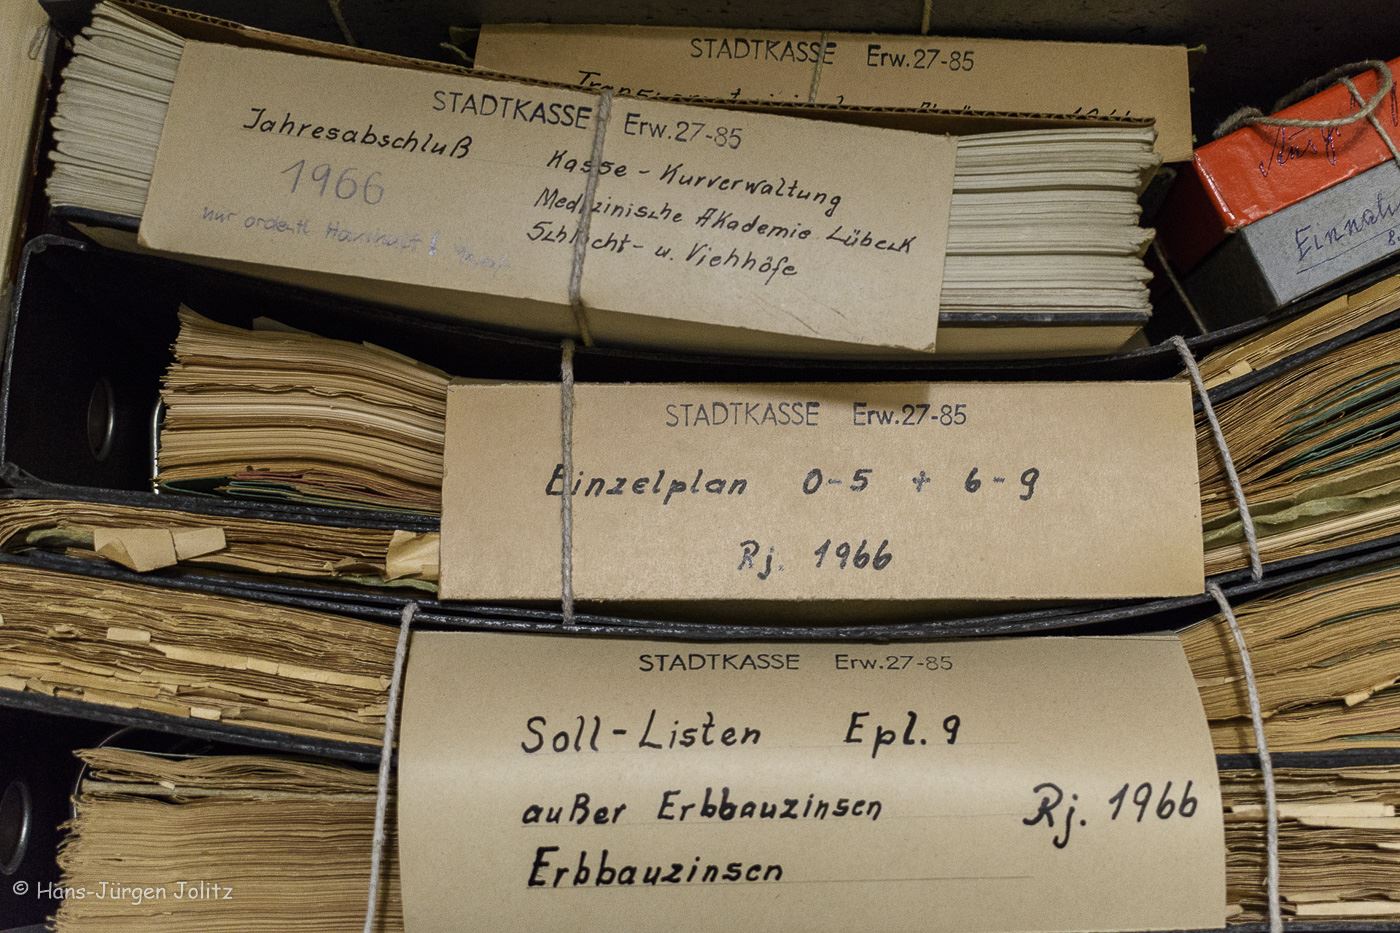 STADTKASSE Erw.27-85
STADTKASSE Erw.27-85
Jahresabschluß
1966
nur ordentl. Haushalt
Kasse - Kurverwaltung
Medizinische Akademie Lübeck
Schlacht- u. Viehhöfe
STADTKASSE Erw.27-85
Einzelplan 0-5 + 6-9
Rj. 1966
STADTKASSE Erw.27-85
Soll-Listen Epl. 9
außer Erbbauzinsen
Rj. 1966
Erbbauzinsen
© Hans-Jürgen Jolitz